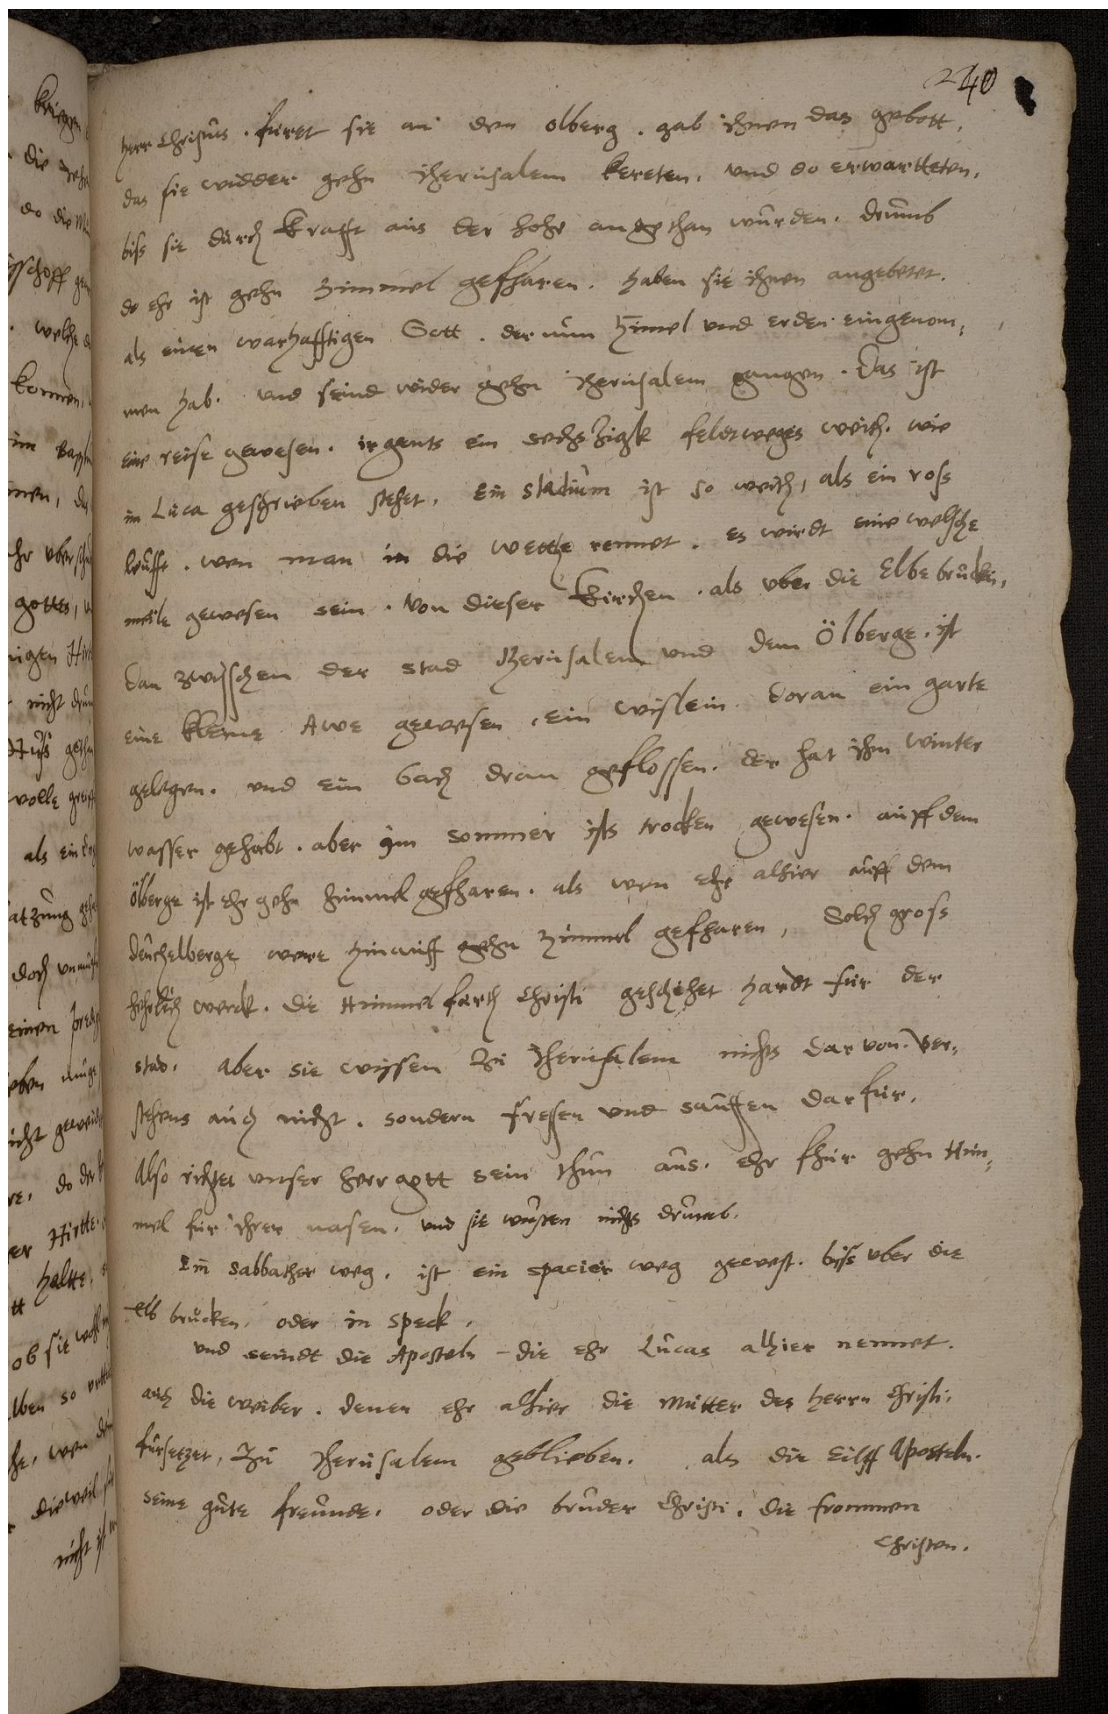 240
herr Christus. füret sie an den olberg. gab ihnen das gebott,
das sie widder gehn Jherusalem kereten, und do erwartteten,
biss sie durch krafft aus der hohe angethan wurden. drumb
do ehr ist gehn himmel gefharen. haben sie ihnen angebetet.
als einen warhafftigen Gott. der nun himel und erden eingenom,
men hab. und seind wider gehn Jherusalem gangen. Das ist
eine reise gewesen. irgents ein sechszigk feldtweges weith. wie
im Luca geschrieben stehet. Ein stadium ist so weith, als ein ross
leufft. wen man in die wette rennet. es wirdt eine welsche
meile gewesen sein. von dieser kirchen. als uber die Elbebrucken,
Dan zwisschen der stad Jherusalem und dem Ölberge. ist
eine kleine Awe gewesen, ein wislein. doran ein garte
gelegen. und ein bach dran geflossen. der hat ihm winter
wasser gehabt. aber im sommer ists trocken gewesen. auff dem
ölberge ist ehr gehn himmel gefharen. als wen ehr alhier auff dem
Deuchelberge were hinauff gehn himmel gefharen, Solch gross
herlich werck. die Himmelfarth Christi geschiehet hardt fur der
stad. Aber sie wissen zu Jherusalem nichts darvon. Ver,
stehens auch nicht. sondern fressen und sauffen darfur.
Also richtet unser herr gott sein thun aus. ehr fhur gehn Him,
mel fur ihrer nasen. und sie wusten nichts drumb.
Ein sabbather weg. ist ein spacier weg gewest. biss uber die
Elb brucken. oder in speck.
und seindt die Aposteln die ehr Lucas alhier nennet.
auch die weiber. denen ehr alhier die mutter des herrn Christi,
fursetzet, zu Jherusalem geblieben. als die Eilff Aposteln.
seine gute freunde. oder die bruder Christi. die frommen
Christen.